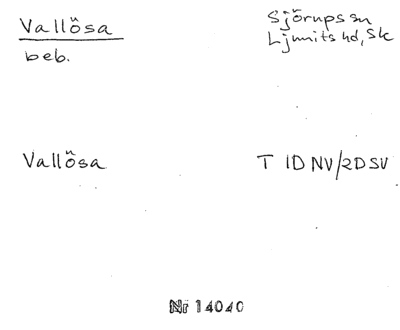 Vallösa
Sjörups sn
Ljunits hd, Sk
beb.
Vallösa
T 1D NV/2D SV
Nr 14040